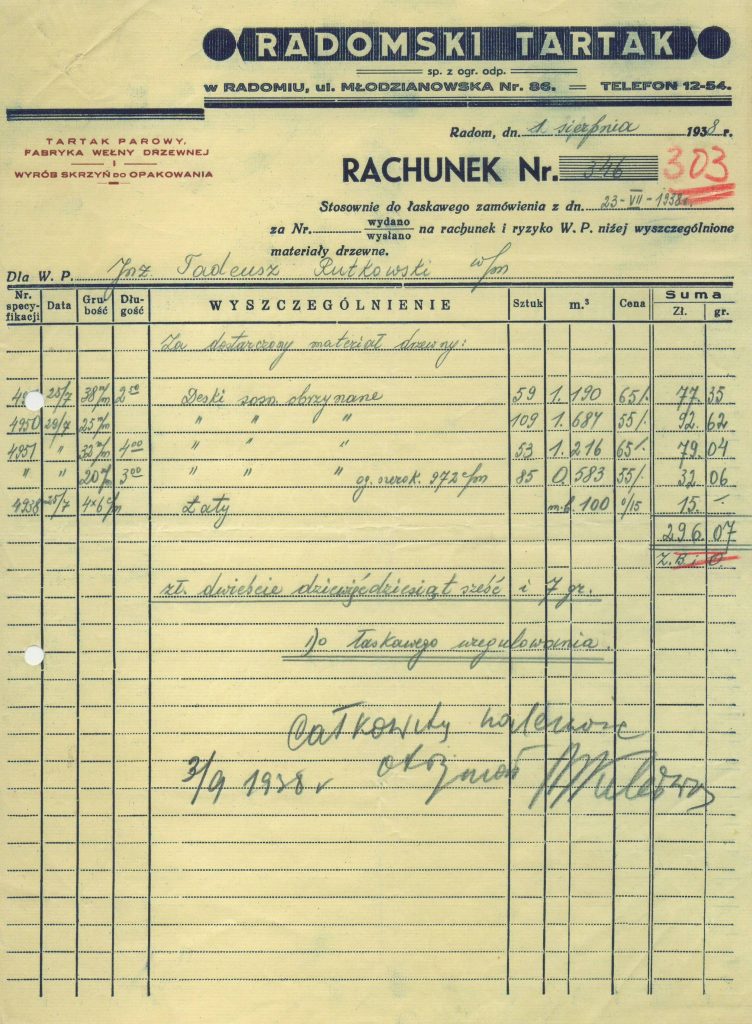 RADOMSKI TARTAK
sp. z ogr. odp.
w RADOMIU, ul. MŁODZIANOWSKA Nr. 86. = TELEFON 12-54.
TARTAK PAROWY,
FABRYKA WEŁNY DRZEWNEJ
I
WYRÓB SKRZYŃ DO OPAKOWANIA
Radom, dn. 1 sierpnia 1938 r.
RACHUNEK Nr. 346 303
Stosownie do łaskawego zamówienia z dn. 23-VII-1938r.
za Nr. wydano na rachunek i ryzyko W. P. niżej wyszczególnione
wysłano
materiały drzewne.
Dla W. P. Inż Tadeusz Rutkowski w/m
Nr. specyfikacji Data Grubość Długość WYSZCZEGÓLNIENIE Sztuk m.³ Cena Suma Zł. gr.
Za dostarczony materiał drzewny:
25/7 38 m/m 2 50 Deski sosn. obrzynane 59 1. 190 65/- 77 35
4950 29/7 25 m/m " " " 109 1. 687 55/- 92 62
4951 " 32 m/m 4 00 " " " 53 1. 216 65/- 79 04
" " 20 m/m 3 00 " " " og. szerok. 972 c/m 85 0 583 55/- 32 06
4938 25/7 4x6 c/m Łaty m.b. 100 0/15 15 -
296 07
Z. B. i O.
zł. dwieście dziewięćdziesiąt sześć i 7 gr.
Do łaskawego uregulowania.
Całkowitą należność
3/9 1938 r otrzymał